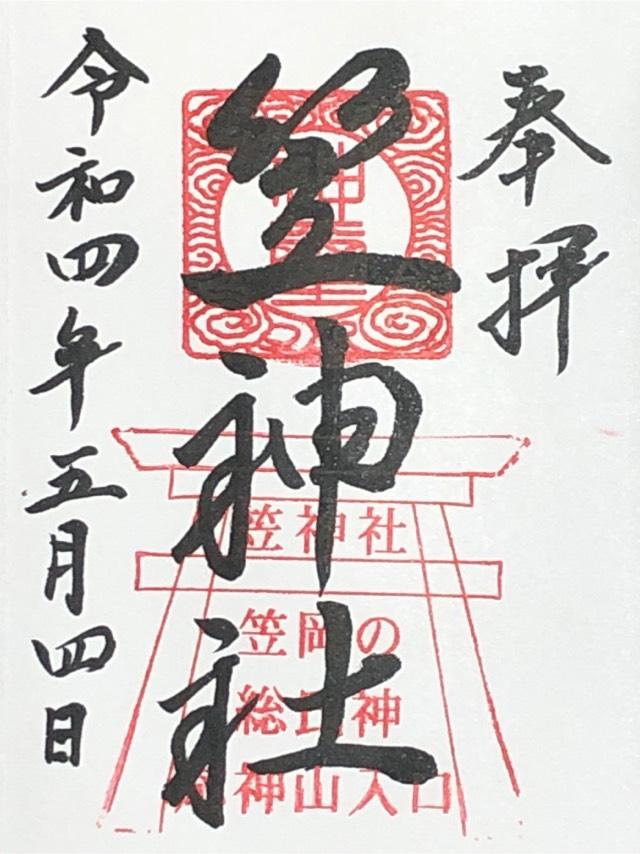 奉拝
笠神社
令和四年五月四日
笠神社
笠岡の
総氏神
神山入口